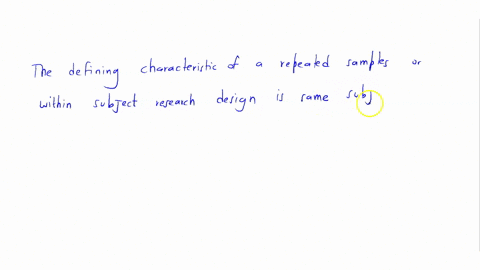 The defining characteristic of a repeated samples or
within subject research design is same subj